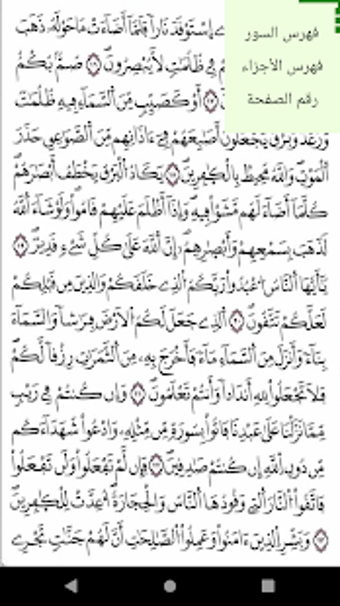 فهرس السور
فهرس الأجزاء
رقم الصفحة
اِ۪سْتَوْقَدَ نَاراٗ فَلَمَّآ أَضَآءَتْ مَا حَوْلَهُۥ ذَهَبَ
فِے ظُلُمَٰتٖ لَّا يُبْصِرُونَۖ صُمُّۢ بُكْمٌ
أَوْ كَصَيِّبٖ مِّنَ اَ۬لسَّمَآءِ فِيهِ ظُلُمَٰتٞ
وَرَعْدٞ وَبَرْقٞ يَجْعَلُونَ أَصَٰبِعَهُمْ فِےٓ ءَاذَانِهِم مِّنَ اَ۬لصَّوَٰعِقِ حَذَرَ
اَ۬لْمَوْتِۖ وَاللَّهُ مُحِيطُۢ بِالْكٰ۪فِرِينَۖ يَكَادُ اُ۬لْبَرْقُ يَخْطَفُ أَبْصَٰرَهُمْ
كُلَّمَآ أَضَآءَ لَهُم مَّشَوْاْ فِيهِ وَإِذَآ أَظْلَمَ عَلَيْهِمْ قَامُواْۖ وَلَوْ شَآءَ اَ۬للَّهُ
لَذَهَبَ بِسَمْعِهِمْ وَأَبْصٰ۪رِهِمُۥٓۖ إِنَّ اَ۬للَّهَ عَلَىٰ كُلِّ شَےْءٖ قَدِيرٞۖ
يَٰٓأَيُّهَا اَ۬لنَّاسُ اُ۟عْبُدُواْ رَبَّكُمُ اُ۬لذِے خَلَقَكُمْ وَالذِينَ مِن قَبْلِكُمْ
لَعَلَّكُمْ تَتَّقُونَۖ اَ۬لذِے جَعَلَ لَكُمُ اُ۬لْأَرْضَ فِرَٰشاٗ وَالسَّمَآءَ
بِنَآءٗ وَأَنزَلَ مِنَ اَ۬لسَّمَآءِ مَآءٗ فَأَخْرَجَ بِهِۦ مِنَ اَ۬لثَّمَرَٰتِ رِزْقاٗ لَّكُمْ
فَلَا تَجْعَلُواْ لِلهِ أَندَاداٗ وَأَنتُمْ تَعْلَمُونَۖ وَإِن كُنتُمْ فِے رَيْبٖ
مِّمَّا نَزَّلْنَا عَلَىٰ عَبْدِنَا فَاتُواْ بِسُورَةٖ مِّن مِّثْلِهِۦ وَادْعُواْ شُهَدَآءَكُم
مِّن دُونِ اِ۬للَّهِ إِن كُنتُمْ صَٰدِقِينَۖ فَإِن لَّمْ تَفْعَلُواْ وَلَن تَفْعَلُواْ
فَاتَّقُواْ اُ۬لنَّارَ اَ۬لتِے وَقُودُهَا اَ۬لنَّاسُ وَالْحِجَارَةُ أُعِدَّتْ لِلْكٰ۪فِرِينَۖ
وَبَشِّرِ اِ۬لذِينَ ءَامَنُواْ وَعَمِلُواْ اُ۬لصَّٰلِحَٰتِ أَنَّ لَهُمْ جَنَّٰتٖ تَجْرِے